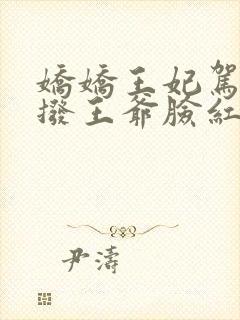 嬌嬌王妃駕
撥王爺臉紅
尹濤